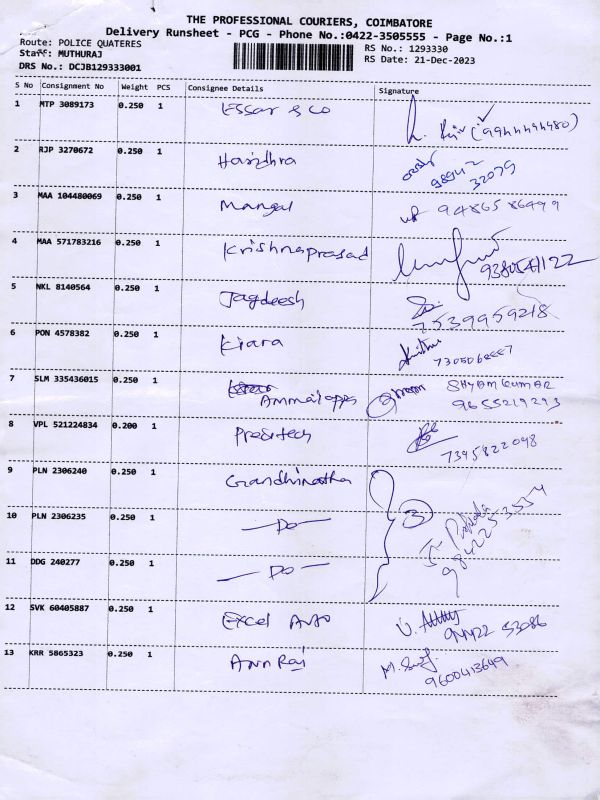 THE PROFESSIONAL COURIERS, COIMBATORE
Delivery Runsheet - PCG - Phone No.:0422-3505555 - Page No.:1
Route: POLICE QUATERES RS No.: 1293330
Staff: MUTHURAJ RS Date: 21-Dec-2023
DRS No.: DCJB129333001
S No Consignment No Weight PCS Consignee Details Signature
1 MTP 3089173 0.250 1 Essar & Co
2 RJP 3270672 0.250 1 Haridhra 98942
32079
3 MAA 104480069 0.250 1 Mangal 9486586499
4 MAA 571783216 0.250 1 Krishnaprasad
9380541122
5 NKL 8140564 0.250 1 Jagdeesh
7539959218
6 PON 4578382 0.250 1 Kiara
7 SLM 335436015 0.250 1 SHYAM KUMAR
9655219293
8 VPL 521224834 0.200 1
7395822098
9 PLN 2306240 0.250 1
10 PLN 2306235 0.250 1 -Do- 3
11 DDG 240277 0.250 1 -Do-
12 SVK 60405887 0.250 1 Excel Auto
13 KRR 5865323 0.250 1 Arun Raj
9600413649